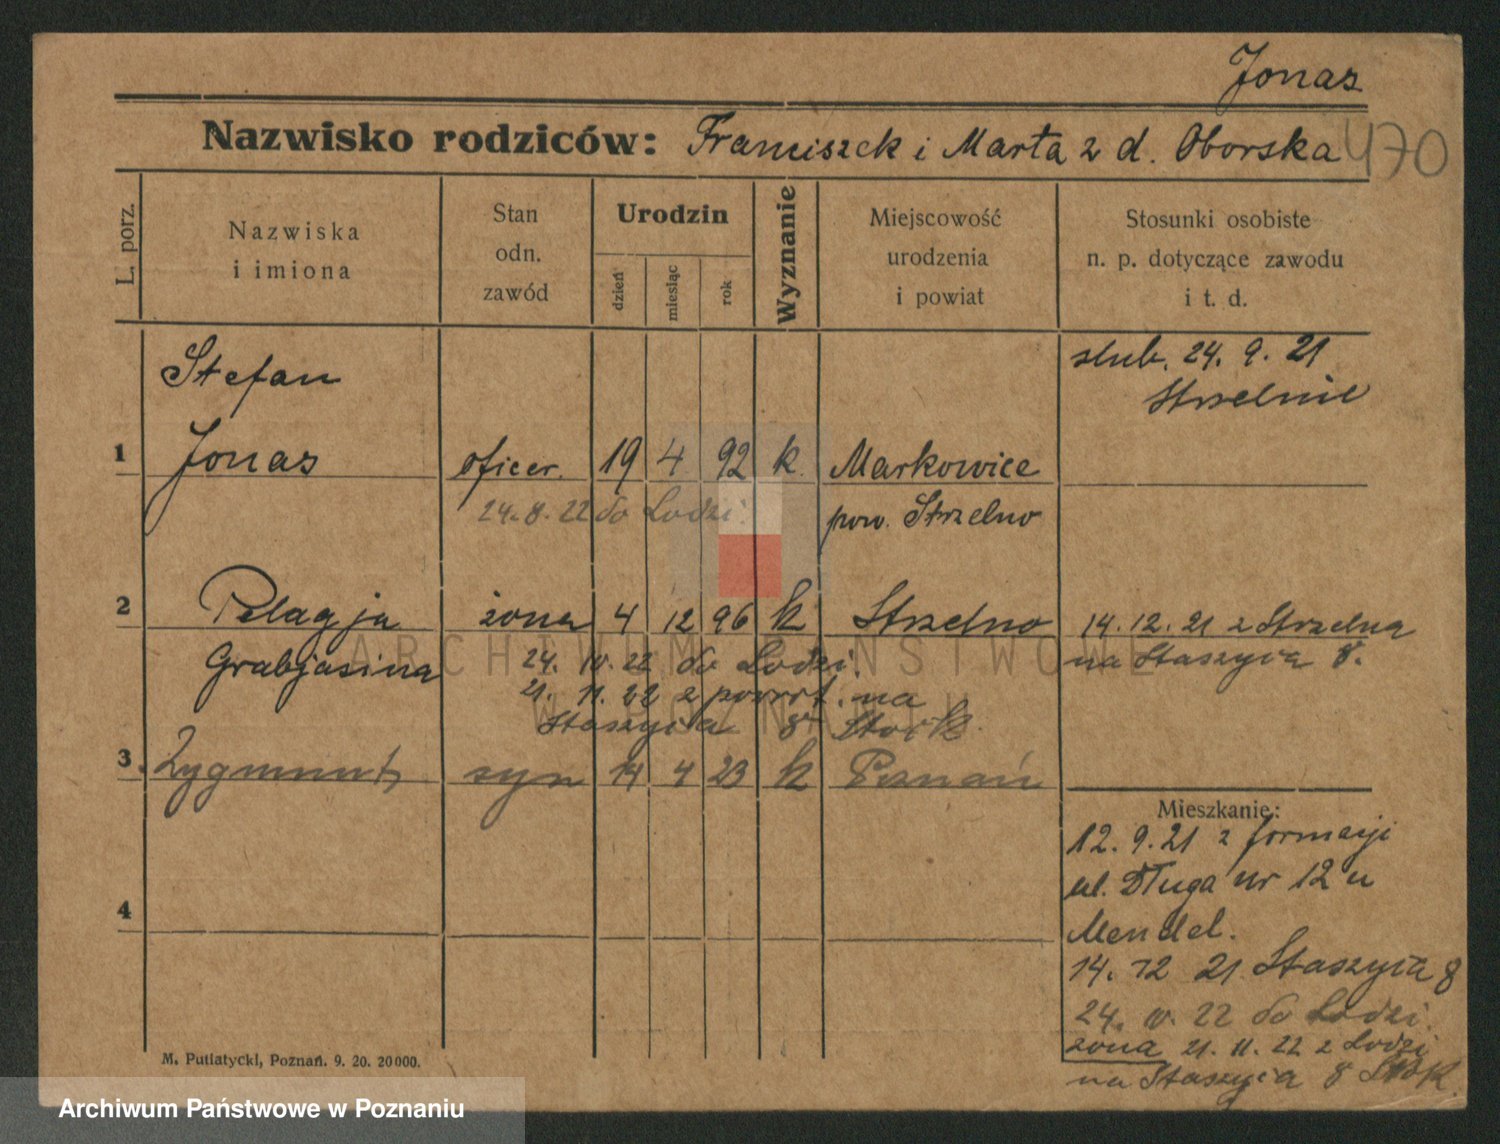 Jonas
Nazwisko rodziców: Franciszek i Marta z d. Oborska 470
L. porz.
Nazwiska
i imiona
Stan
odn.
zawód
Urodzin
dzień
miesiąc
rok
Wyznanie
Miejscowość
urodzenia
i powiat
Stosunki osobiste
n. p. dotyczące zawodu
i t. d.
Stefan
ślub. 24. 9. 21
Strzelnie
1 Jonas oficer. 19 4 92 k. Markowice
24. 8. 22 do Lodzi.
pow. Strzelno
2 Pelagja żona 4 12 96 k Strzelno 14. 12. 21 z Strzelna
na Staszyca 8.
Grabjasina 24. IV. 22 do Lodzi.
21. 11. 22 z powrt. na
Staszyca 8 Stork.
3 Zygmunt syn 14 4 23 k Poznań
4
Mieszkanie:
12. 9. 21 z formacji
ul. Długa nr 12 u
Mendel.
14. 12 21 Staszyca 8
24. IV. 22 do Lodzi.
żona 21. 11. 22 z Lodzi
na Staszyca 8 Stork.
M. Putiatycki, Poznań. 9. 20. 20000.
ARCHIWUM PAŃSTWOWE
W POZNANIU
Archiwum Państwowe w Poznaniu